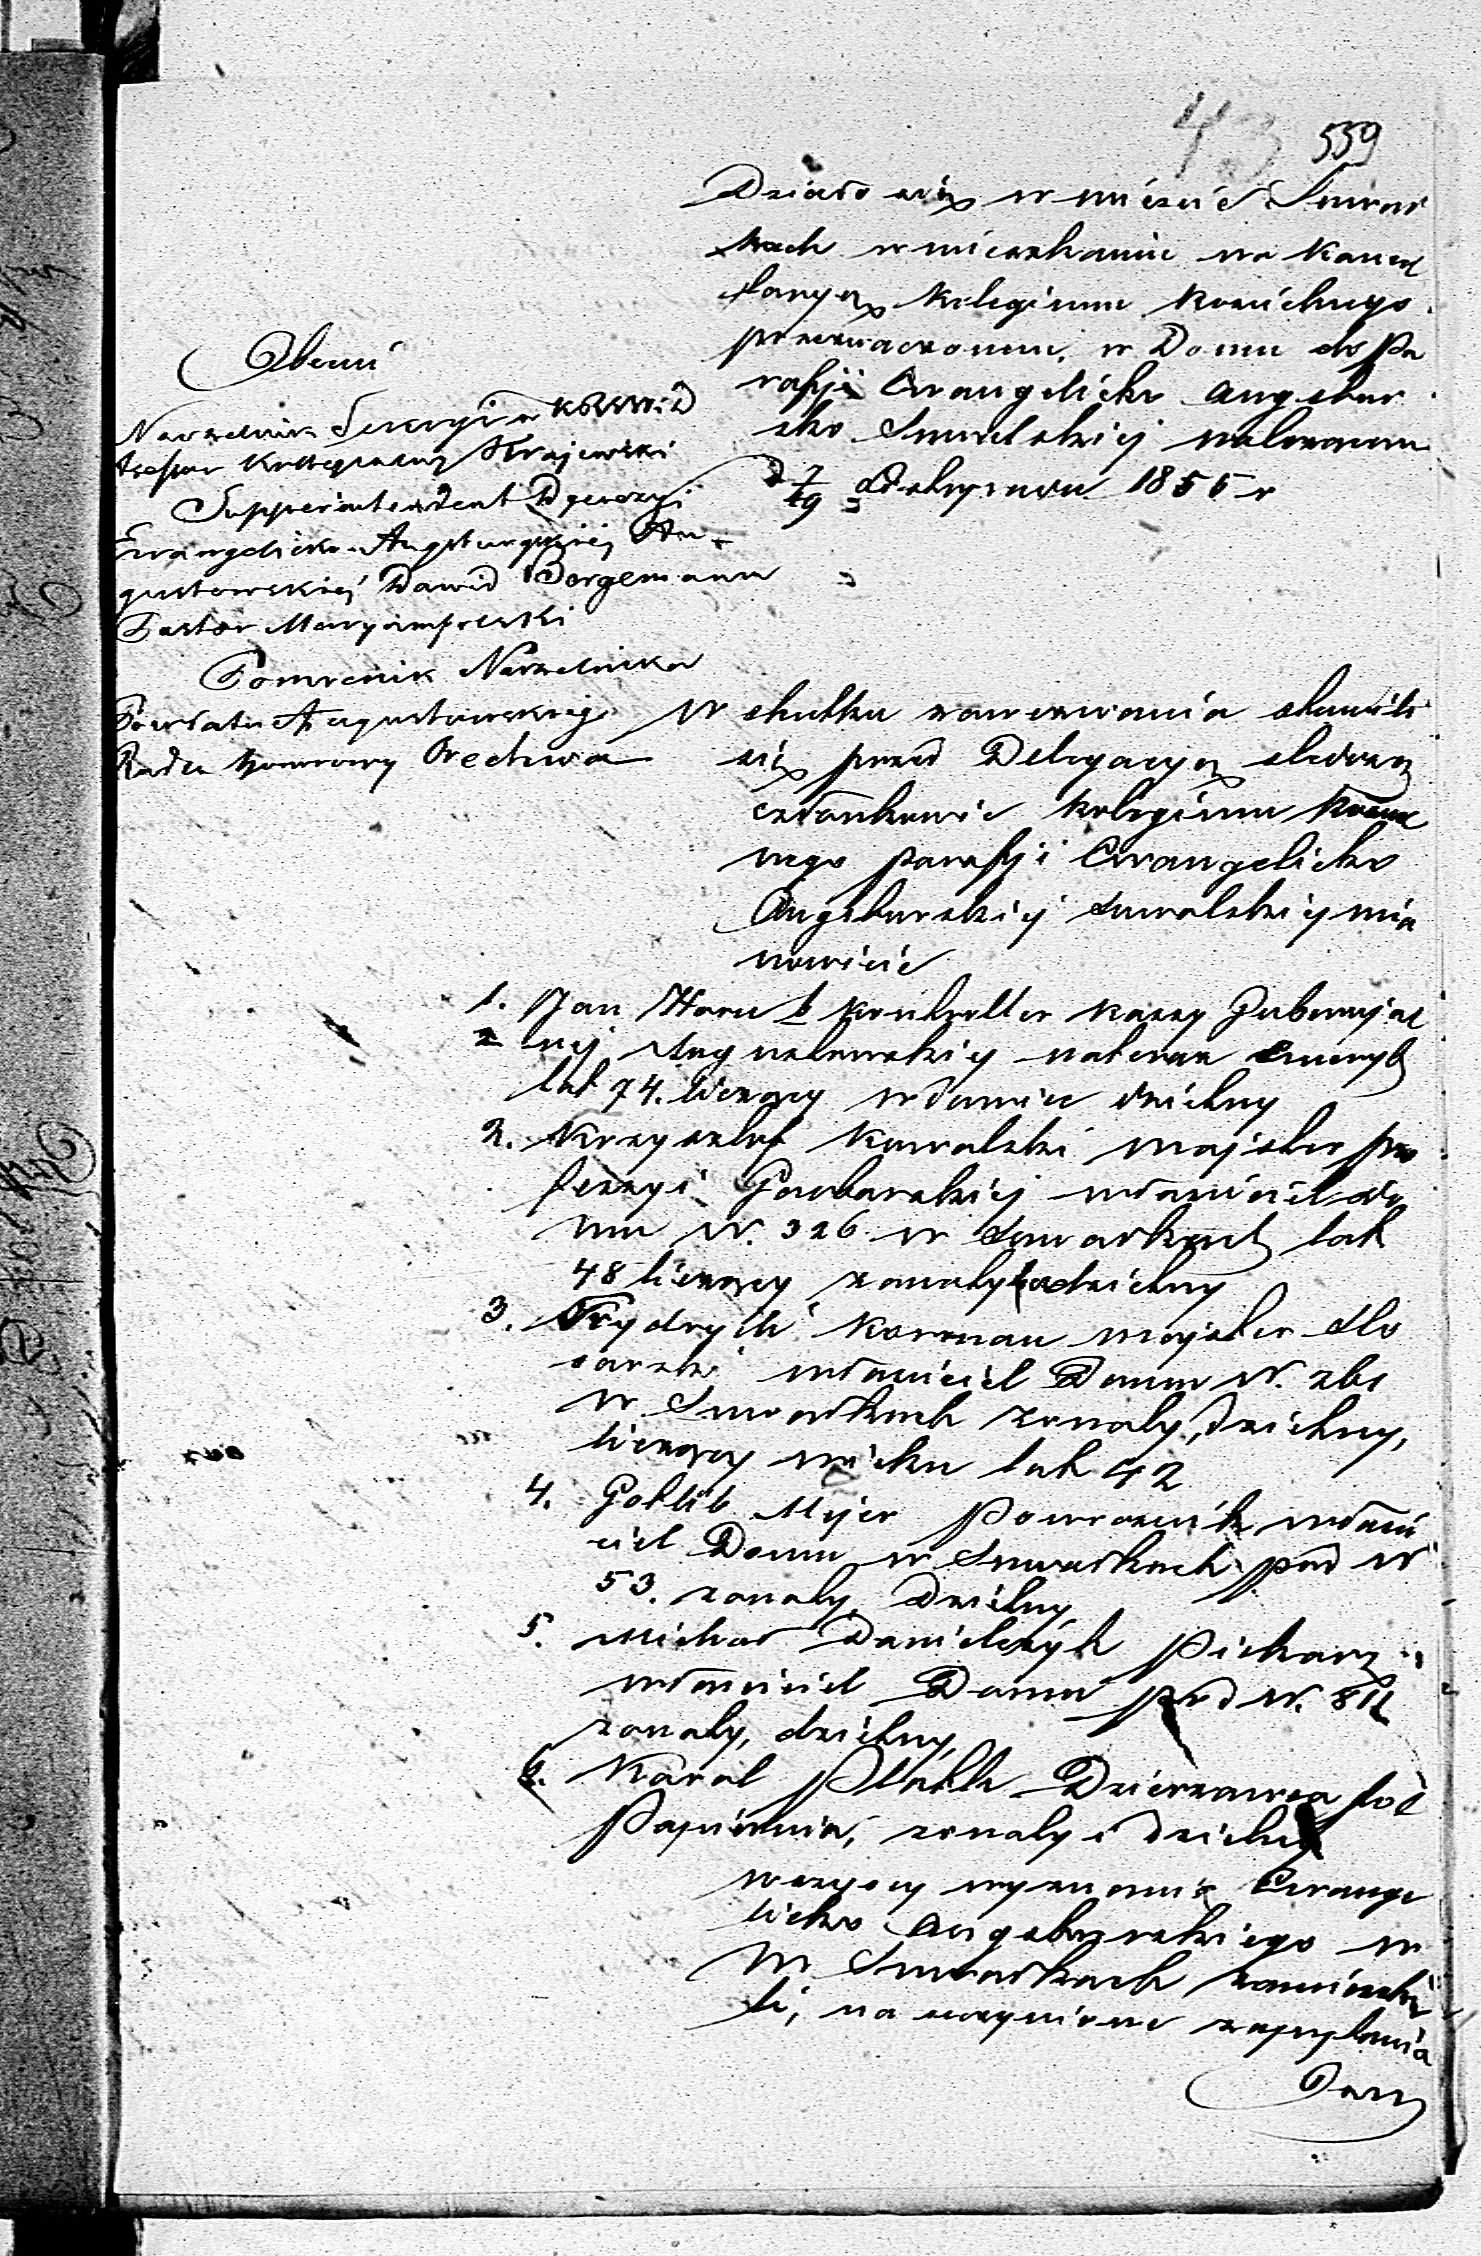 43 559
Działo się w mieście Suwał
kach w mieszkaniu na kance
laryę kolegium kościelnego
przeznaczonem, w Domu do Pa
rafji Ewangelicko Augsbur
sko Suwalskiej należącem
d 7/19 1855 r
Obecni
Naczelnik
Assesor Kollegialny Krajewski
Superintendent Dyecezyi
Ewangelicko-Augsburgskiej Au-
gustowskiej Dawid Borgemann
Pastor Maryampolski
Pomocnik Naczelnika
Powiatu Augustowskiego
Radca honorowy Orechwa
W skutku zawezwania stawili
się przed Delegacyą
członkowie kolegium kościel
nego parafji Ewangelicko
Augsburskiej Suwalskiej mia
nowicie
1. Jan b kontroller kassy Gubernijal
nej Augustowskiej na teraz emeryt
lat 74. liczący wdowiec dzietny
2. Krzysztof Kowalski majster pro
fessyi Garbarskiej właściciel do
mu N. 326 w Suwałkach lat
48 liczący żonaty dzietny
3. Frydrych Korman majster slo
sarski właściciel Domu N. 261
w Suwałkach żonaty, dzietny,
liczący wieku lat 42
4. Gotlib Mejer Powroźnik właści
ciel Domu w Suwałkach pod N
53. żonaty, Dzietny
5. Michał Danielczyk Piekarz
właściciel Domu pod N.
żonaty, dzietny,
6. Karol Dzierżawca fol
Papiernia, żonaty i dzietny
wszyscy wyznania Ewange
licko Augsburskiego w
M Suwałkach zamieszka
li, na uczynione zapytania